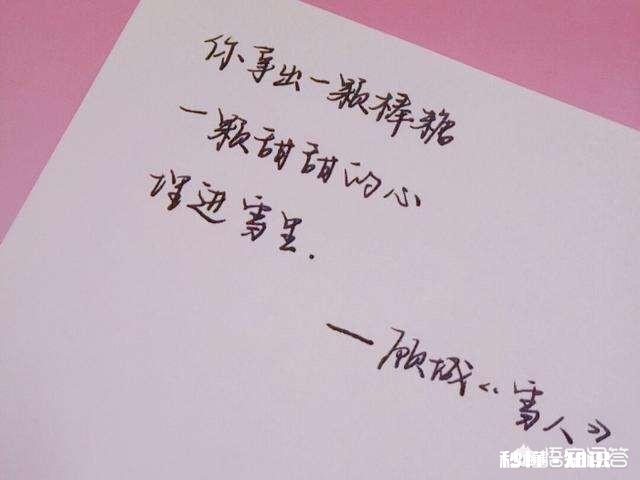 你拿出一颗棒糖
一颗甜甜的心
埋进雪里.
一顾城《雪人》
悟空问答
秒懂·知识